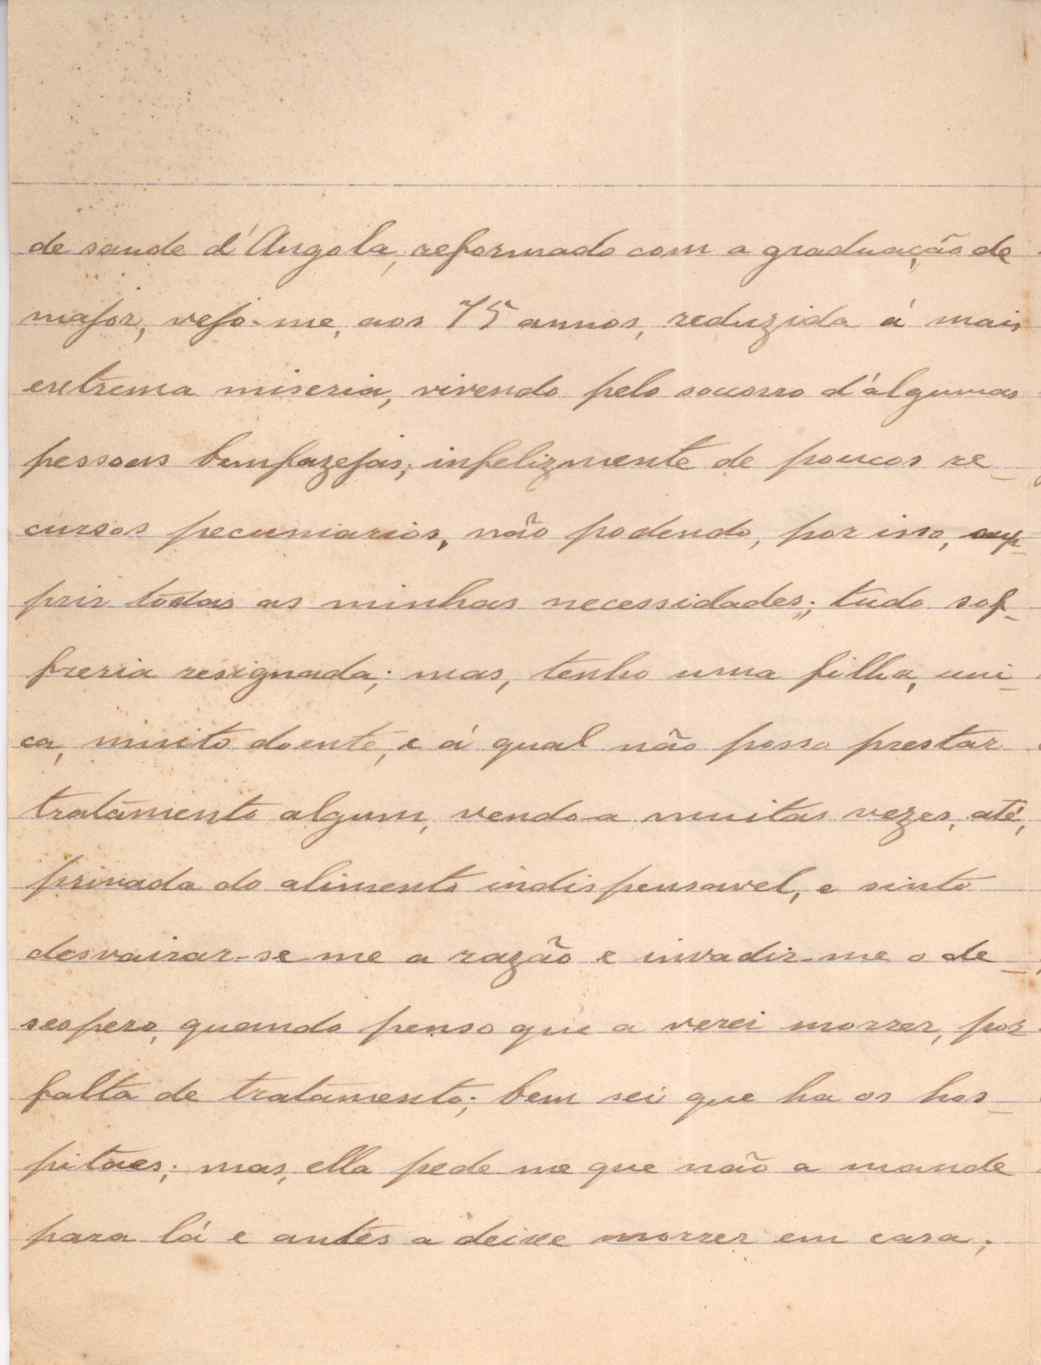 de saude d'Angola, reformado com a graduação de
major, vejo-me, aos 75 annos, reduzida á mais
extrema miseria, vivendo pelo socorro d'algumas
pessoas bemfazejas; infelizmente de poucos re-
cursos pecuniarios, não podendo, por isso, sup-
prir todas as minhas necessidades; tudo sof-
freria resignada; mas, tenho uma filha, uni-
ca, muito doente, e á qual não posso prestar
tratamento algum, vendo-a muitas vezes, até,
privada do alimento indispensavel, e sinto
desvairar-se-me a razão e invadir-me o de-
sespero, quando penso que a verei morrer, por
falta de tratamento; bem sei que ha os hos-
pitaes; mas, ella pede me que não a mande
para lá e antes a deixe morrer em casa;